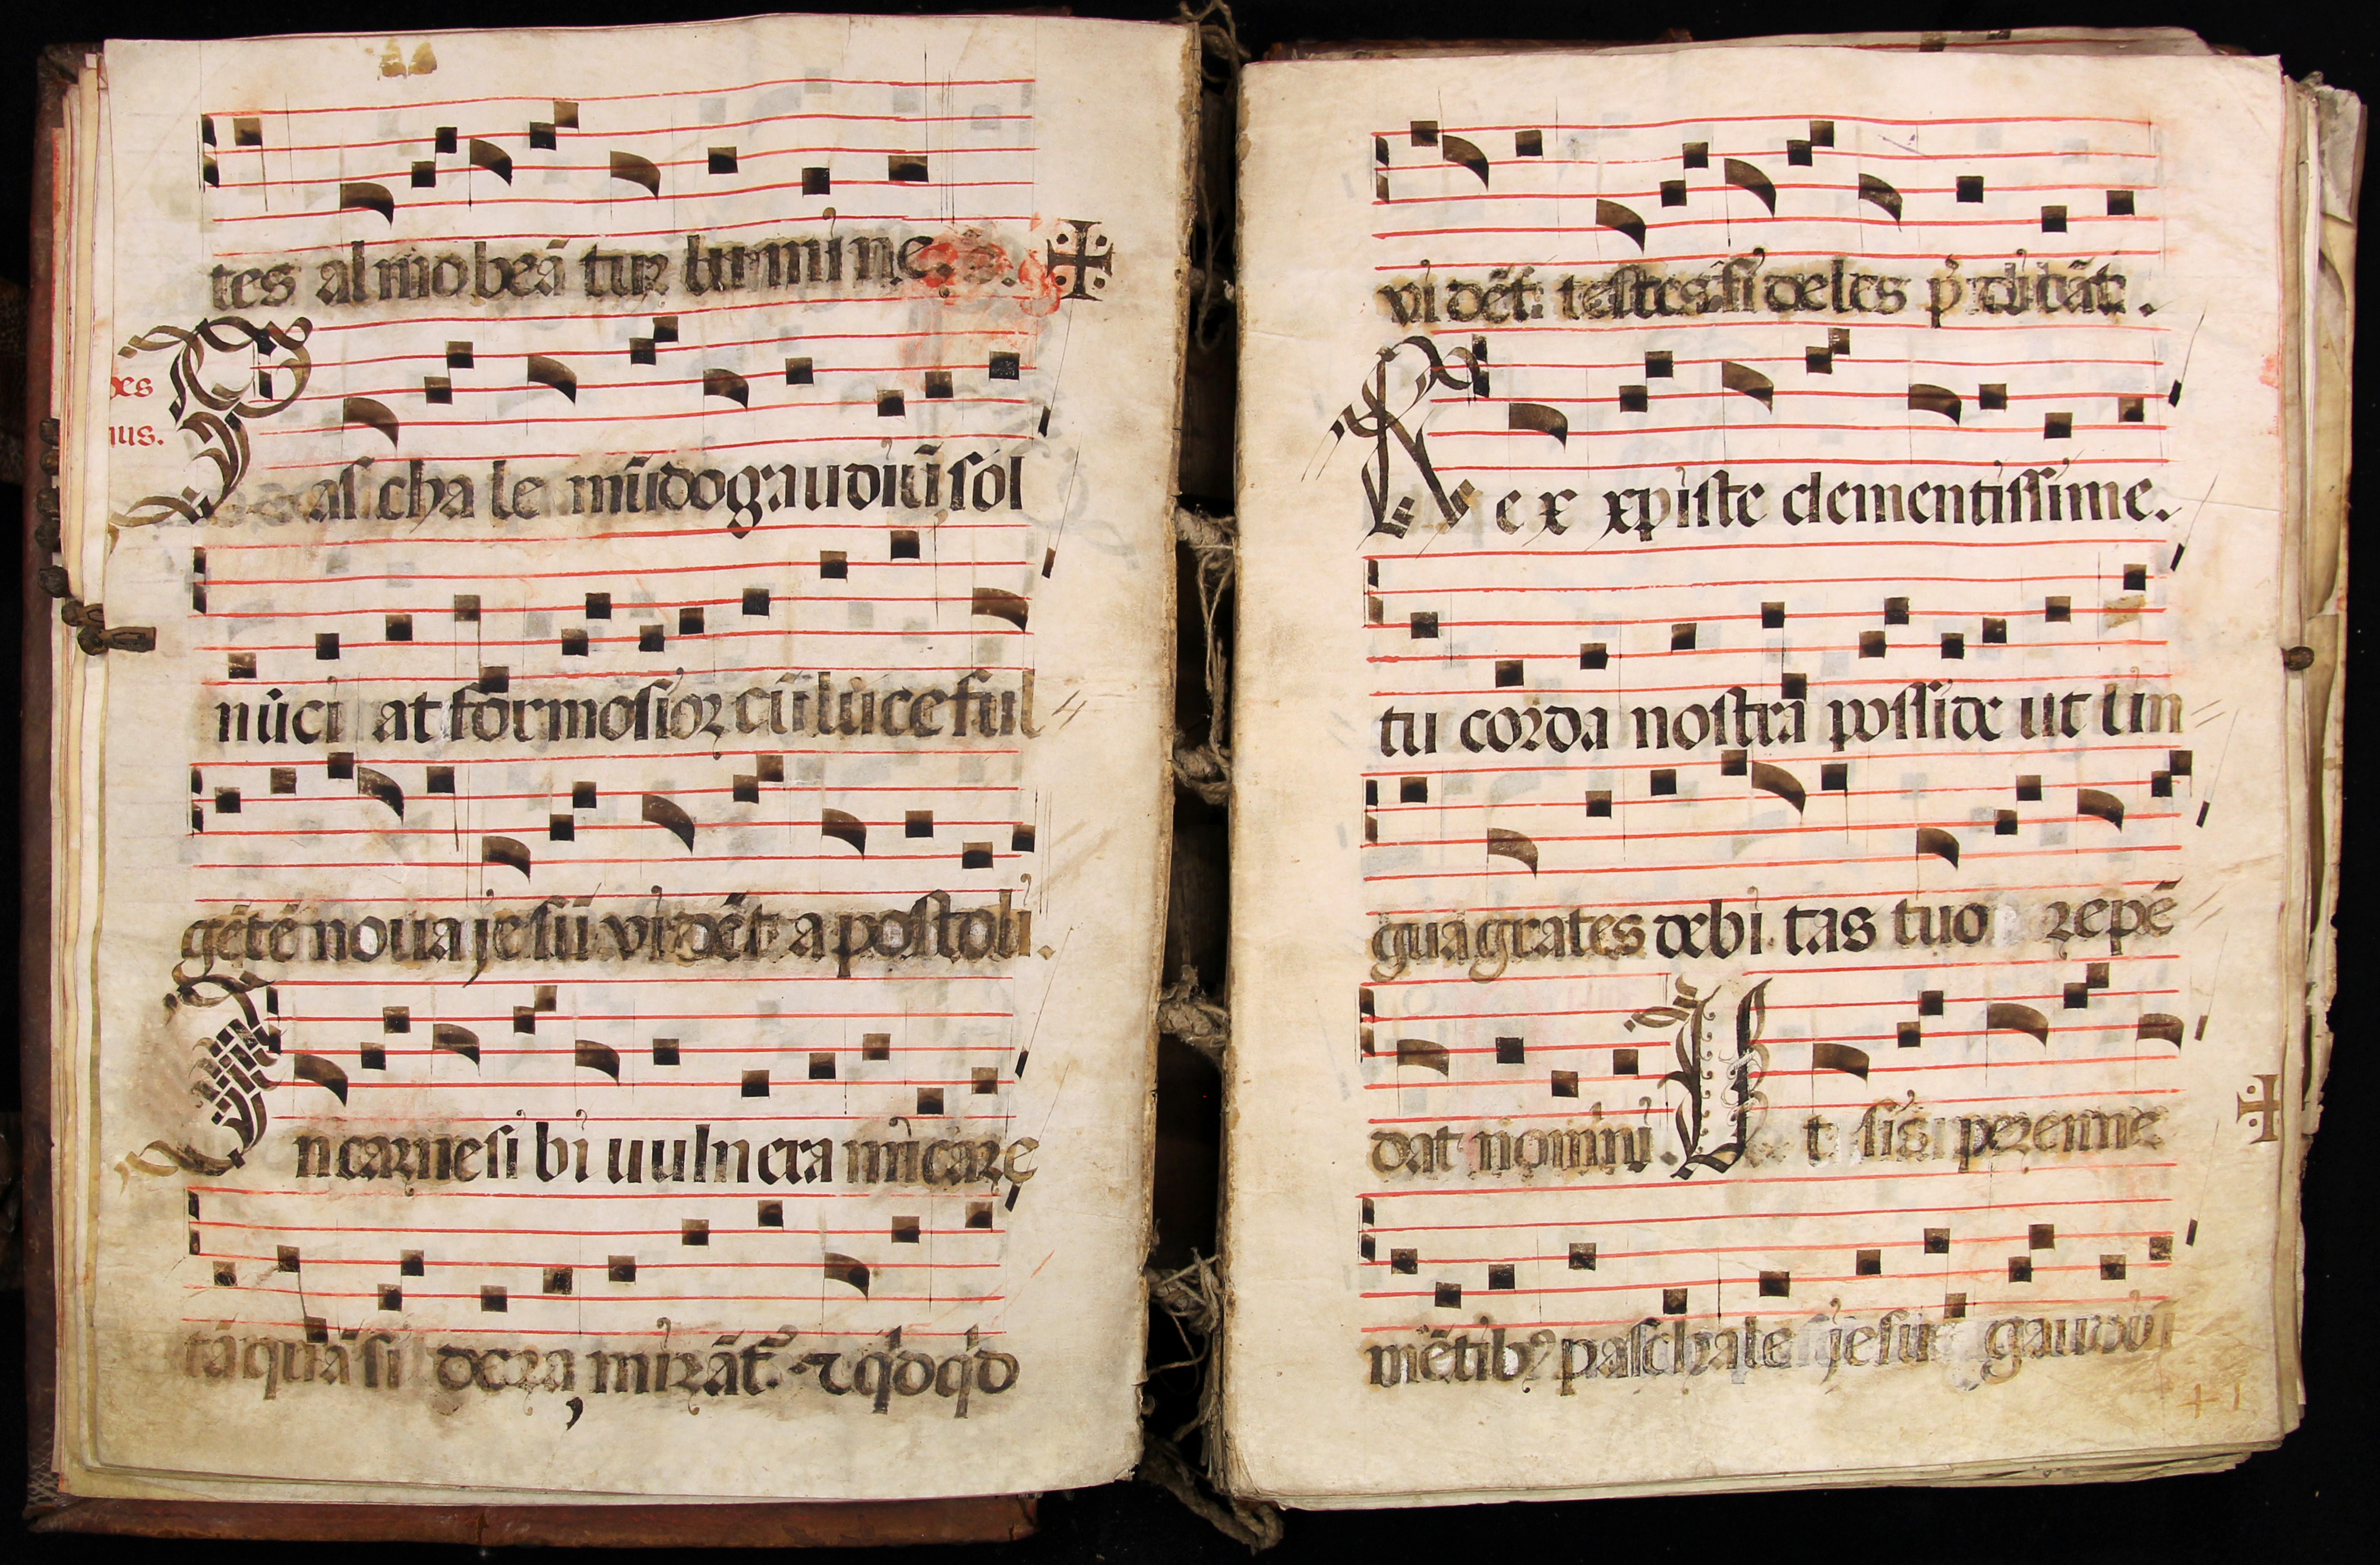 tes almo beā tur lumine.
des
nus.
Pascha le mūdo gaudiū sol
nūci at formosior cū luce ful
gētē noua jesū vidēt apostoli.
In carne sibi uulnera micare
tāquā sidera mirāt. τ qd qd
vidēt. testes fideles p̄dicāt.
Rex xpiste clementissime.
tu corda nostra posside ut lin
gua grates debitas tuo repē
dat nomini. Ut sis perenne
mētibꝰ paschale jesu gaudi
+ 1